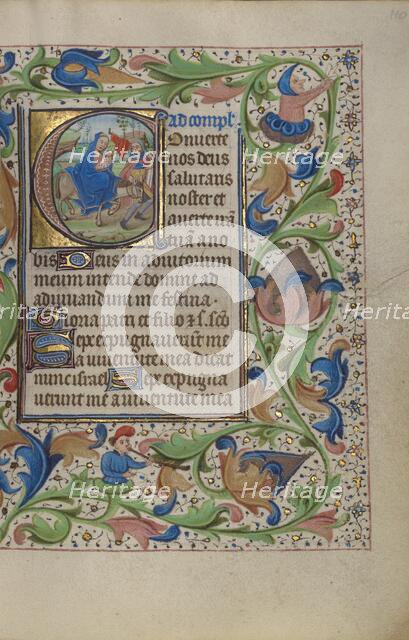 Ad compl'
Onuerte
nos deus
salutaris
noster et
auerte irā
tuā a no
bis Deus in adiutorium
meum intende domine ad
adiuuandum me festina
Gloria patri et filio et s. sci
Sepe expugnauerunt me
a iuuentute mea dicat
nunc israel Sepe expugna
uerunt me a iuuentute mea
Heritage
Heritage
Heritage
Heritage
Heritage
Heritage
Heritage
Heritage
Heritage